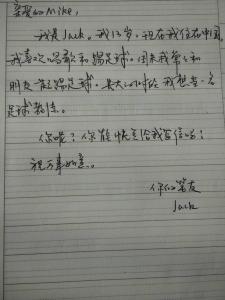 亲爱的Mike，
我是Jack。我13岁，现在我住在中国。
我喜欢唱歌和踢足球。周末我常和
朋友一起踢足球。长大的时候我想当一名
足球教练。
你呢？你能快点给我写信吗？
祝万事如意。
你的笔友
Jack